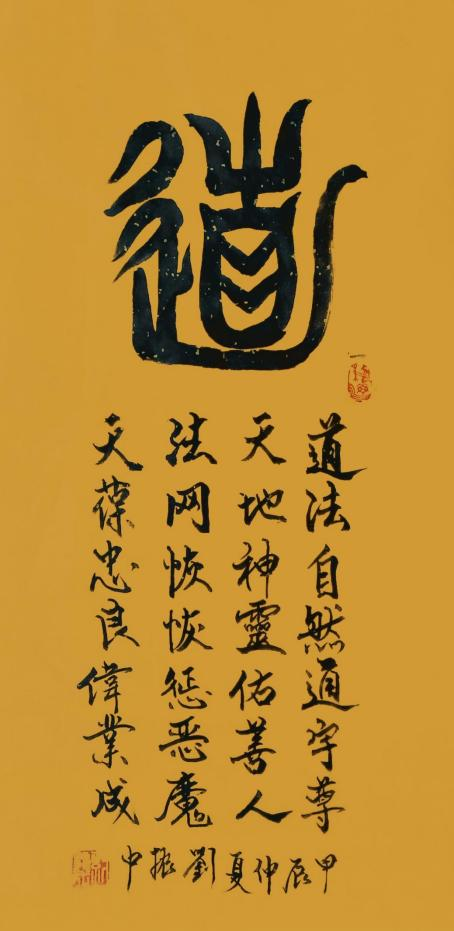 道
道法自然通宇尊
天地神靈佑善人
法网恢恢惩恶魔
天葆忠良偉業成
甲辰仲夏劉振中